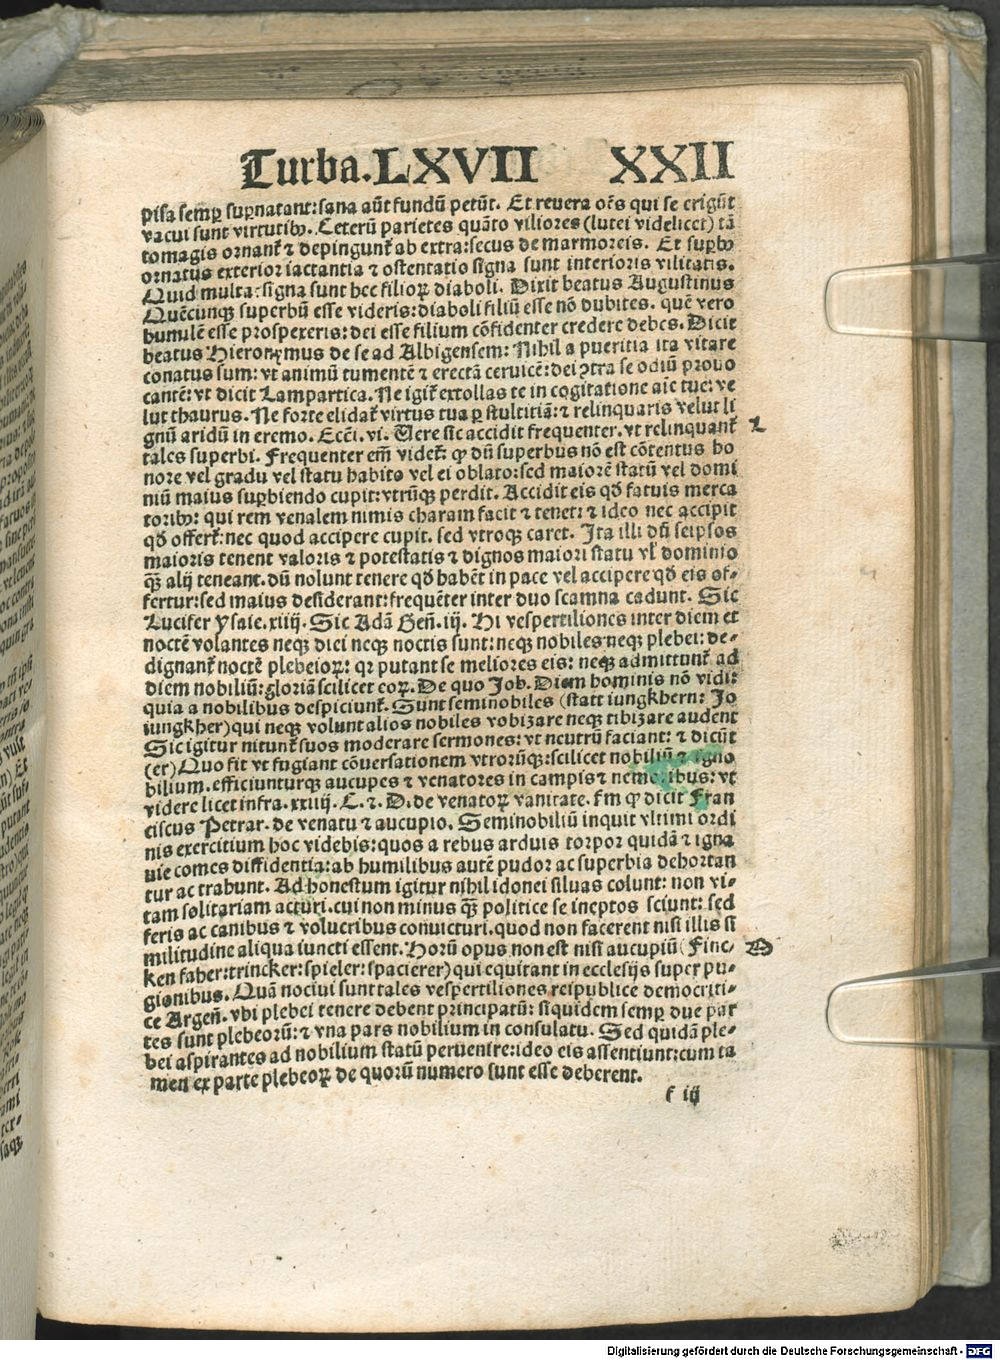 Turba. LXVII XXII
pisa semꝑ suꝑnatant: sana aūt fundū petūt. Et revera oēs qui se erigūt
vacui sunt virtutibꝰ. Ceterū parietes quāto viliores (lutei videlicet) tā
tomagis ornant̄ ⁊ depingunt̄ ab extra: secus de marmoreis. Et suꝑbꝰ
ornatus exterior iactantia ⁊ ostentatio signa sunt interioris vilitatis.
Quid multa: signa sunt hec filioꝝ diaboli. Dixit beatus Augustinus
Quēcunqꝫ superbū esse videris: diaboli filiū esse nō dubites. quē vero
humulē esse prospexeris: dei esse filium cōfidenter credere debes. Dicit
beatus Hieronymus de se ad Albigensem: Nihil a pueritia ita vitare
conatus sum: vt animū tumentē ⁊ erectā ceruicē: dei ↄtra se odiū provo
cantē: vt dicit Lampartica. Ne igit̄ extollas te in cogitatione aīe tue: ve
lut thaurus. Ne forte elidat̄ virtus tua ꝑ stultitiā: ⁊ relinquaris velut li
gnū aridū in eremo. Ecci. vi. Uere sic accidit frequenter. vt relinquant̄
tales superbi. Frequenter em̄ videt̄: ꝙ dū superbus nō est cōtentus ho
nore vel gradu vel statu habito vel ei oblato: sed maiorē statū vel domi
niū maius suꝑbiendo cupit: vtrūqꝫ perdit. Accidit eis qd̄ fatuis merca
toribꝰ: qui rem venalem nimis charam facit ⁊ tenet: ⁊ ideo nec accipit
qd̄ offert̄: nec quod accipere cupit. sed vtroqꝫ caret. Ita illi dū seipsos
maioris tenent valoris ⁊ potestatis ⁊ dignos maiori statu vl̄ dominio
qꝫ̄ alij teneant. dū nolunt tenere qd̄ habēt in pace vel accipere qd̄ eis of-
fertur: sed maius desiderant: frequēter inter duo scamna cadunt. Sic
Lucifer Ysaie. xiiij. Sic Adā Gen̄. iij. Hi vespertiliones inter diem et
noctē volantes neqꝫ diei neqꝫ noctis sunt: neqꝫ nobiles neqꝫ plebei: de-
dignant̄ noctē plebeioꝝ: qr putant se meliores eis: neqꝫ admittunt̄ ad
diem nobiliū: gloriā scilicet eoꝝ. De quo Job. Diem hominis nō vidi:
quia a nobilibus despiciunt̄. Sunt seminobiles (statt iungkhern: Jo
iungkher) qui neqꝫ volunt alios nobiles vobizare neqꝫ tibizare audent
Sic igitur nitunt̄ suos moderare sermones: vt neutrū faciant: ⁊ dicūt
(er) Quo fit vt fugiant cōuersationem vtrorūqꝫ: scilicet nobiliū ⁊ igno
bilium. efficiunturqꝫ aucupes ⁊ venatores in campis ⁊ nemoribus: vt
videre licet infra. xxiiij. C. ⁊. D. de venatoꝝ vanitate. fm̄ ꝙ dicit Fran
ciscus Petrar. de venatu ⁊ aucupio. Seminobiliū inquit vltimi ordi
nis exercitium hoc videbis: quos a rebus arduis torpor quidā ⁊ igna
uie comes diffidentia: ab humilibus autē pudor ac superbia dehortan
tur ac trahunt. Ad honestum igitur nihil idonei siluas colunt: non vi-
tam solitariam acturi. cui non minus qꝫ̄ politice se ineptos sciunt: sed
feris ac canibus ⁊ volucribus conuicturi. quod non facerent nisi illis si
militudine aliqua iuncti essent. Horū opus non est nisi aucupiū (Finc-
ken faber: trincker: spieler: spacierer) qui equitant in ecclesijs super pu-
gionibus. Quā nociui sunt tales vespertiliones reipublice democriti-
ce Argen̄. vbi plebei tenere debent principatū: siquidem semꝑ due par
tes sunt plebeorū: ⁊ vna pars nobilium in consulatu. Sed quidā ple-
bei aspirantes ad nobilium statū peruenire: ideo eis assentiunt: cum ta
men ex parte plebeoꝝ de quorū numero sunt esse deberent.
f iij
D
Digitalisierung gefördert durch die Deutsche Forschungsgemeinschaft - DFG